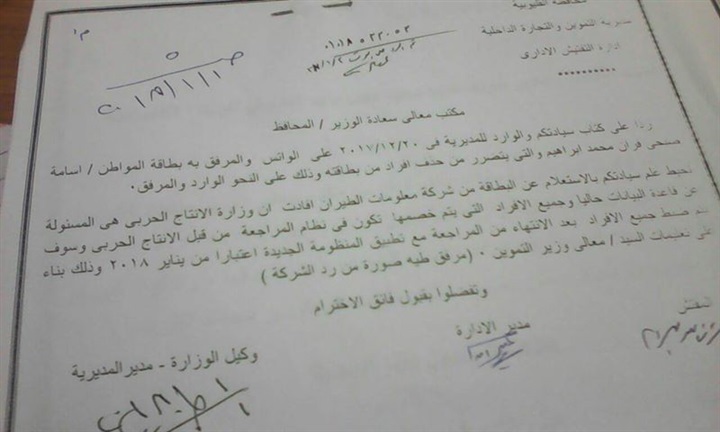 محافظة القليوبية
مديرية التموين والتجارة الداخلية
ادارة التفتيش الادارى
مكتب معالى سعادة الوزير / المحافظ
ردا على كتاب سيادتكم والوارد للمديرية فى ٢٠١٧/١٢/٢٠ على الواتس والمرفق به بطاقة المواطن / اسامة
صبحى فران محمد ابراهيم والتي يتضرر من حذف افراد من بطاقته وذلك على النحو الوارد والمرفق ٠
نحيط علم سيادتكم بالاستعلام عن البطاقة من شركة معلومات الطيران افادت ان وزارة الانتاج الحربى هى المسئولة
عن قاعدة البيانات حاليا وجميع الافراد التي يتم خصمها تكون فى نظام المراجعة من قبل الانتاج الحربى وسوف
يتم ضبط جميع الافراد بعد الانتهاء من المراجعة مع تطبيق المنظومة الجديدة اعتبارا من يناير ٢٠١٨ وذلك بناء
على تعليمات السيد / معالى وزير التموين ٠ ( مرفق طيه صورة من رد الشركة )
وتفضلوا بقبول فائق الاحترام
المفتش
مدير الادارة
وكيل الوزارة - مدير المديرية